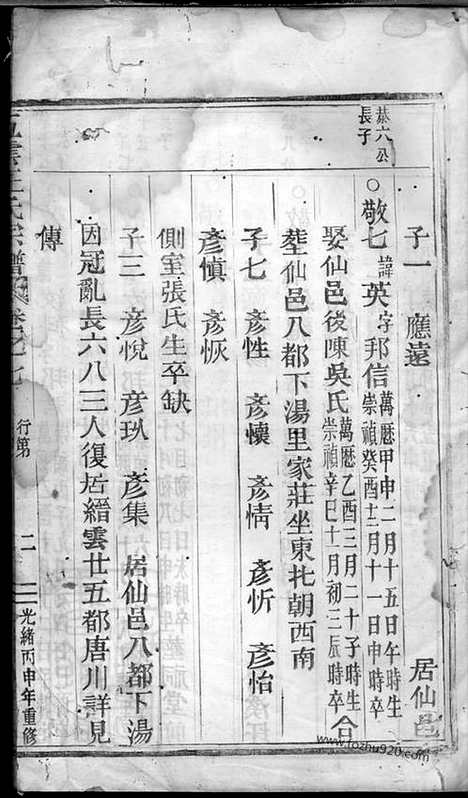 恭六公
長子
子一 應遠 居仙邑
○敬七 諱英字邦信 萬曆甲申二月十五日午時生
崇禎癸酉十二月十一日申時卒
娶仙邑後陳吳氏 萬曆乙酉三月二十子時生
崇禎辛巳十月初三辰時卒 合
塟仙邑八都下湯里家莊坐東北朝西南
子七 彥性 彥懷 彥情 彥忻 彥怡
彥慎 彥恢
側室張氏生卒缺
子三 彥悅 彥㺵 彥集 居仙邑八都下湯
因冠亂長六八三人復居縉雲廿五都唐川詳見
傳
王氏宗譜 卷之七 行第 二 光緒丙申年重修
www.fozhu920.com